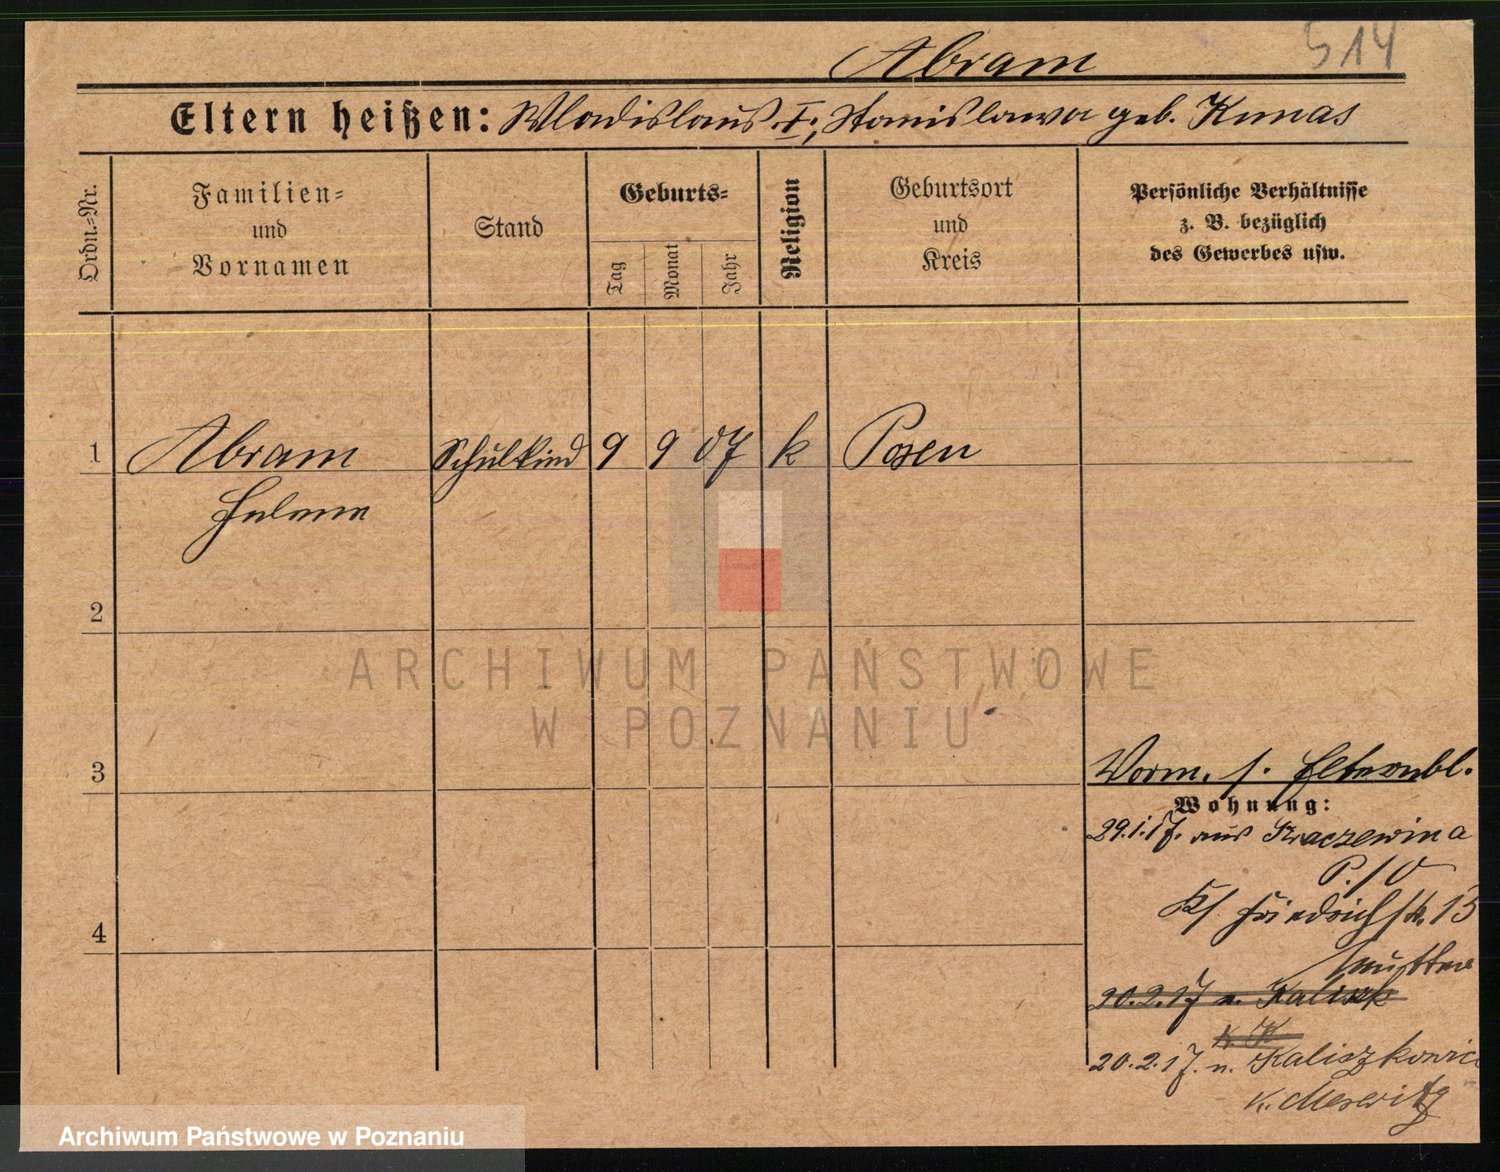 514
Abram
Eltern heißen: Wladislaus I, Stanislawa geb. Kunas
Ordn.-Nr.
Familien-
und
Vornamen
Stand
Geburts-
Tag
Monat
Jahr
Religion
Geburtsort
und
Kreis
Persönliche Verhältnisse
z. B. bezüglich
des Gewerbes usw.
1 Abram Schulkind 9 9 07 k Posen
Helene
2
3
4
Vorm. s. Elternbl.
Wohnung:
29.1.17. aus
P. / O
Friedrichstr. 13
Mutter
20.2.17 n. Kalisz
k. K
20.2.17. n. Kaliszkowice
K.
ARCHIWUM PAŃSTWOWE
W POZNANIU
Archiwum Państwowe w Poznaniu